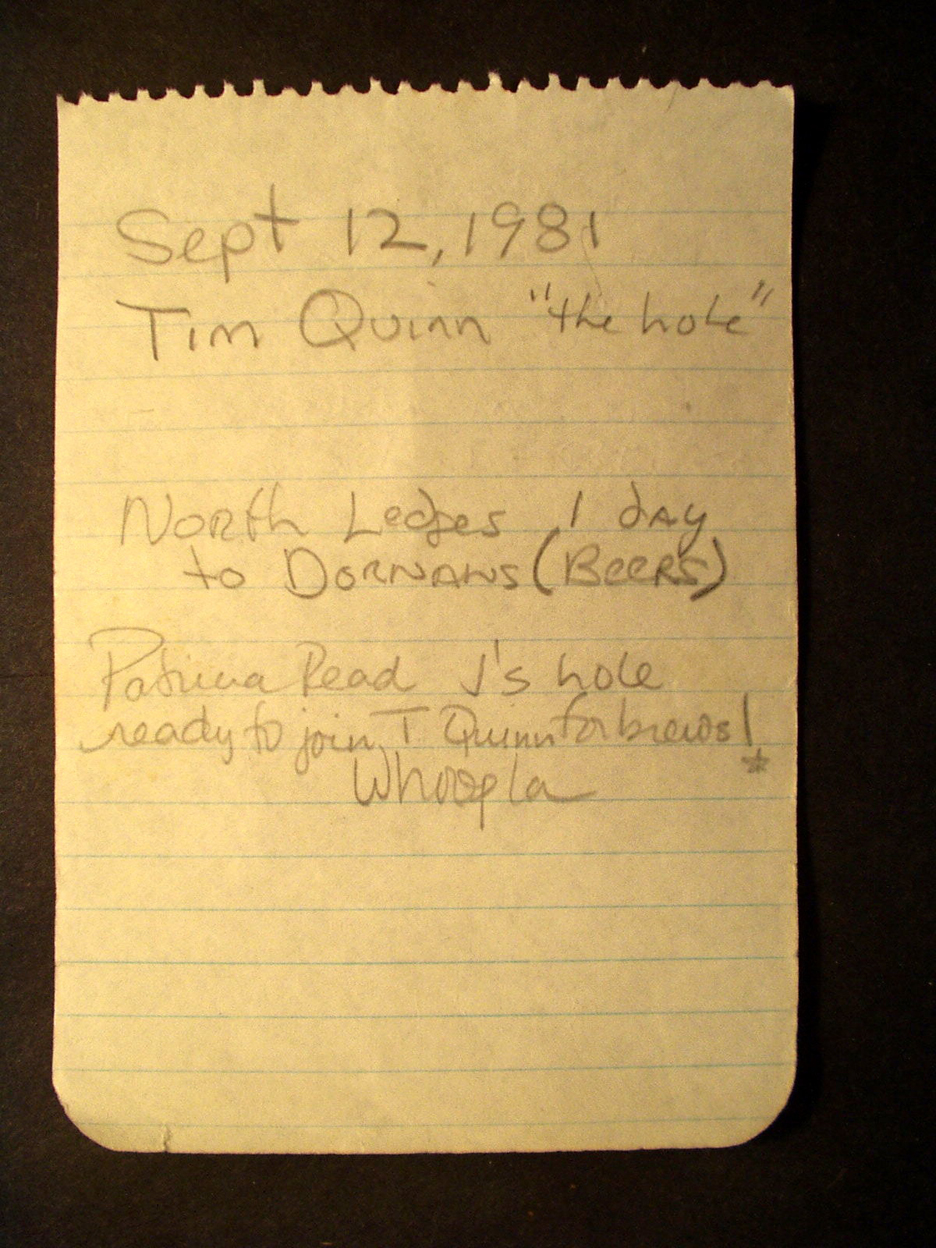 Sept 12, 1981
Tim Quinn "the hole"
North Ledges 1 day
to Dornans (Beers)
Patricia Read J's hole
ready to join T Quinn for brews!
Whoopla *